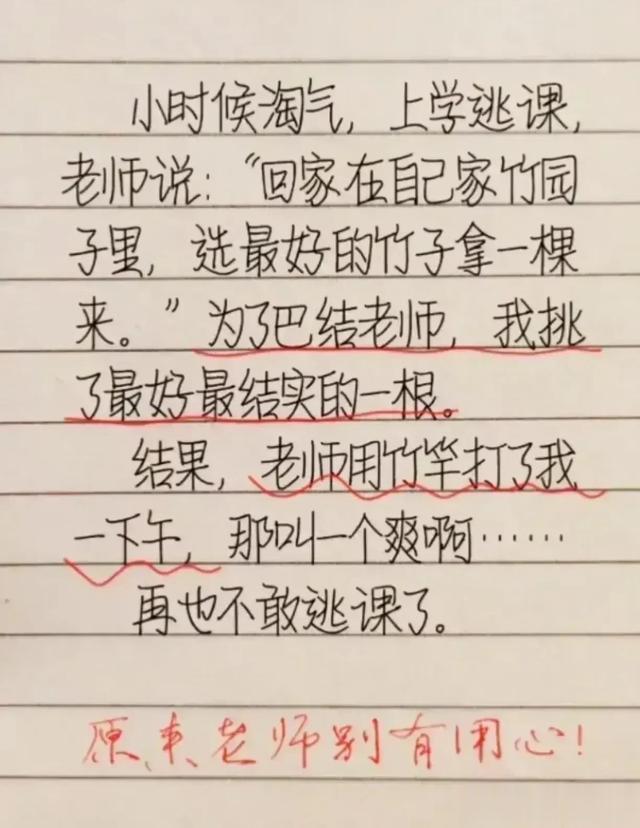 小时候淘气，上学逃课，
老师说：“回家在自己家竹园
子里，选最好的竹子拿一棵
来。”为了巴结老师，我挑
了最好最结实的一根。
结果，老师用竹竿打了我
一下午，那叫一个爽啊……
再也不敢逃课了。
原来老师别有用心！